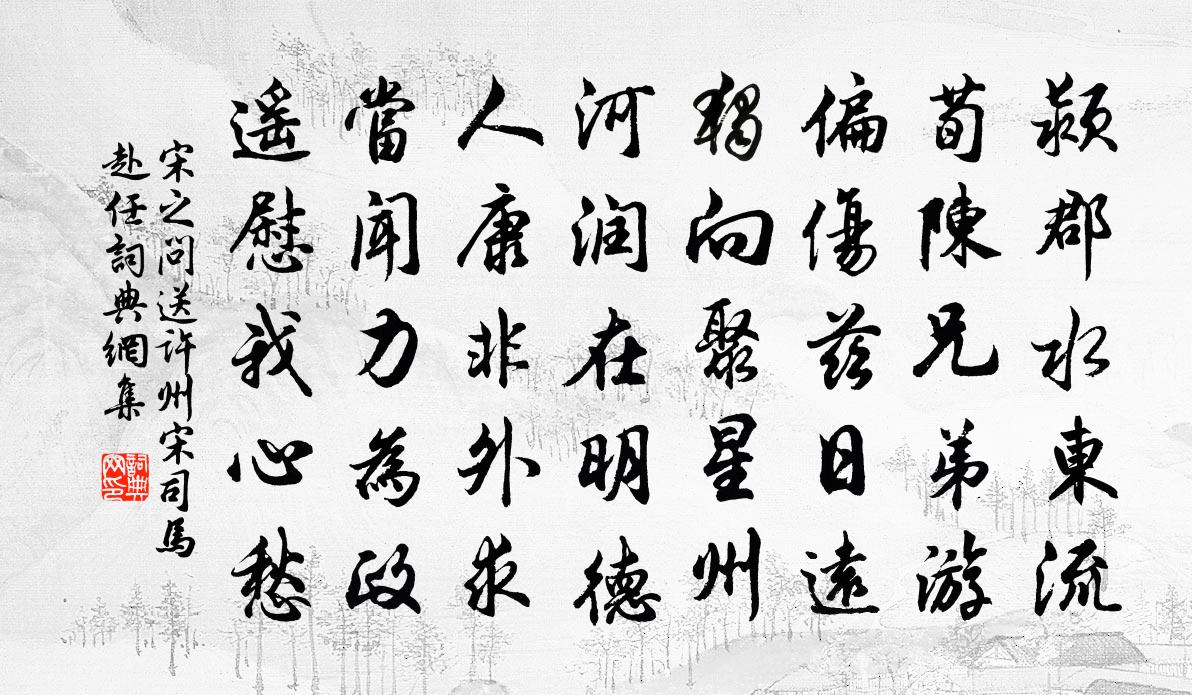 潁郡水東流
荀陳兄弟游
偏傷茲日遠
獨向聚星州
河潤在明德
人康非外求
當聞力為政
遥慰我心愁
宋之問送許州宋司馬
赴任詞典網集
詞典网印